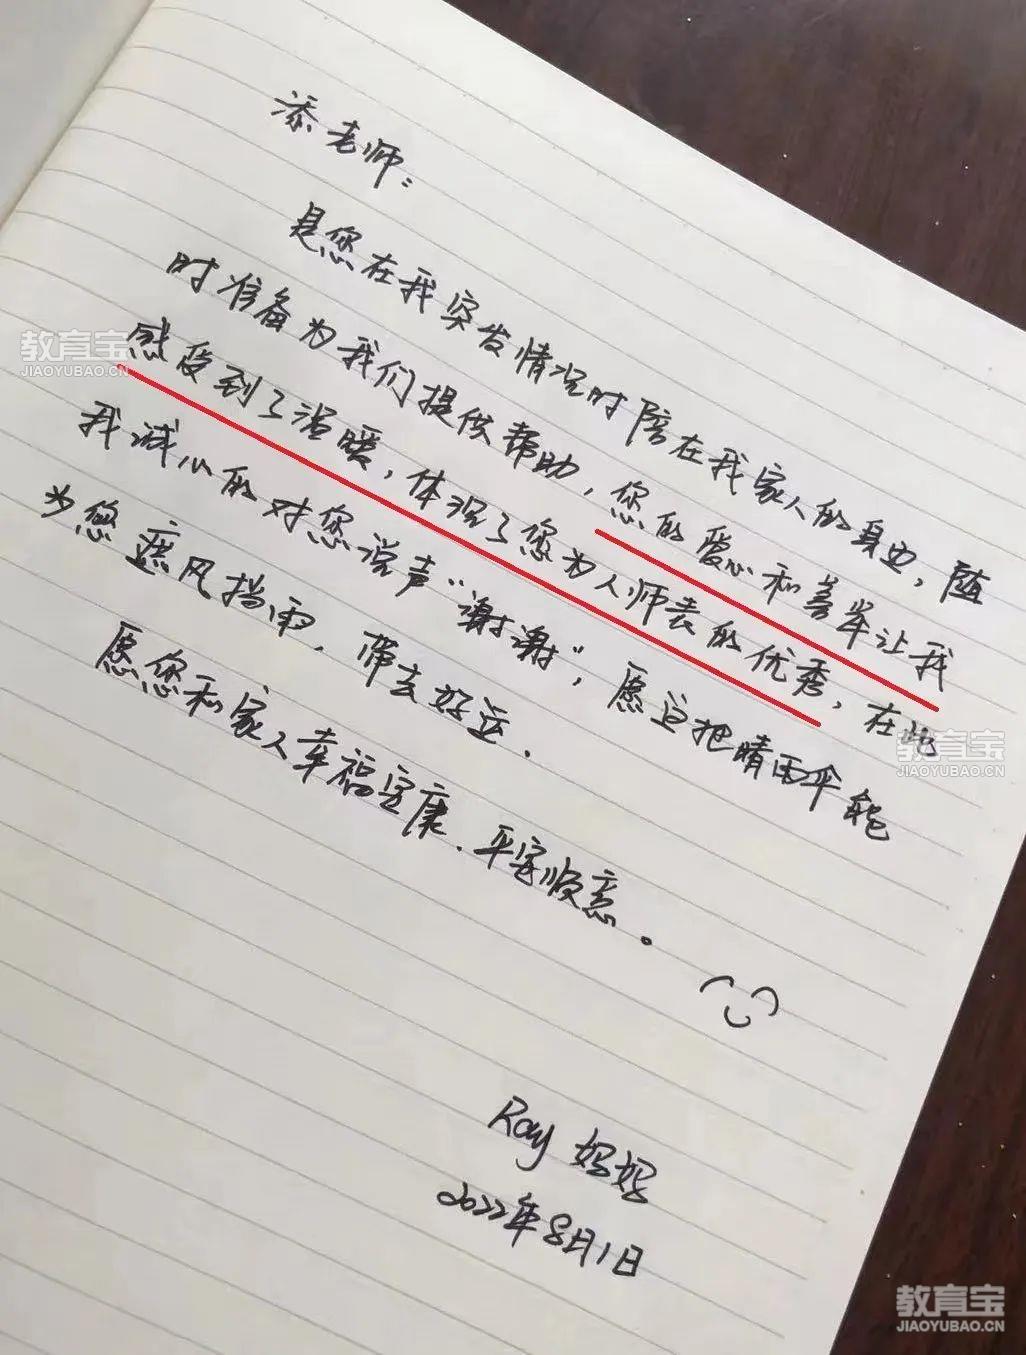 添老师：
是您在我突发情况时陪在我家人的身边，随
时准备为我们提供帮助，您的爱心和善举让我
感受到了温暖，体现了您为人师表的优秀，在此
我诚心的对您说声“谢谢”，愿这把晴雨伞能
为您遮风挡雨，带去好运．
愿您和家人幸福安康．平安顺意。
Ray 妈妈
2022年8月1日
教育宝
JIAOYUBAO.CN
教育宝
JIAOYUBAO.CN
教育宝
JIAOYUBAO.CN